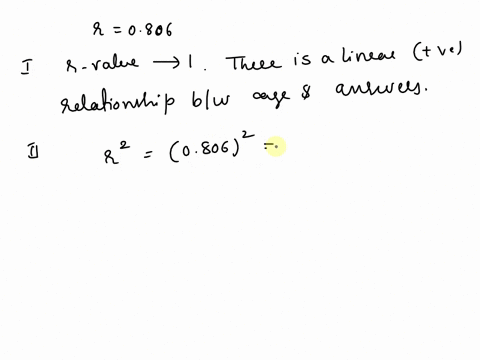 r = 0.806
I r-value → 1. There is a linear (+ve)
relationship b/w age & answers.
II r² = (0.806)² =